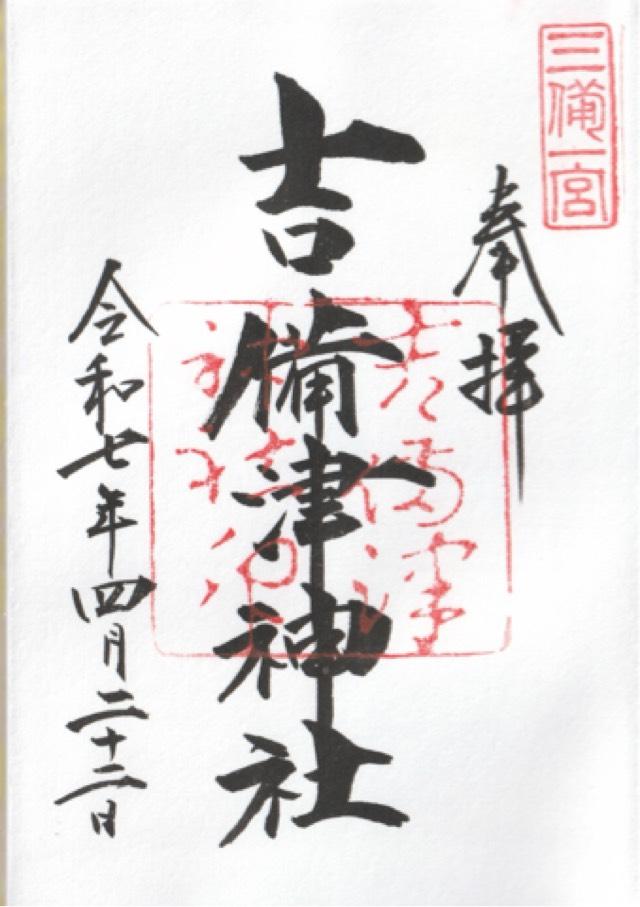 三備一宮
奉拝
吉備津神社
令和七年四月二十二日